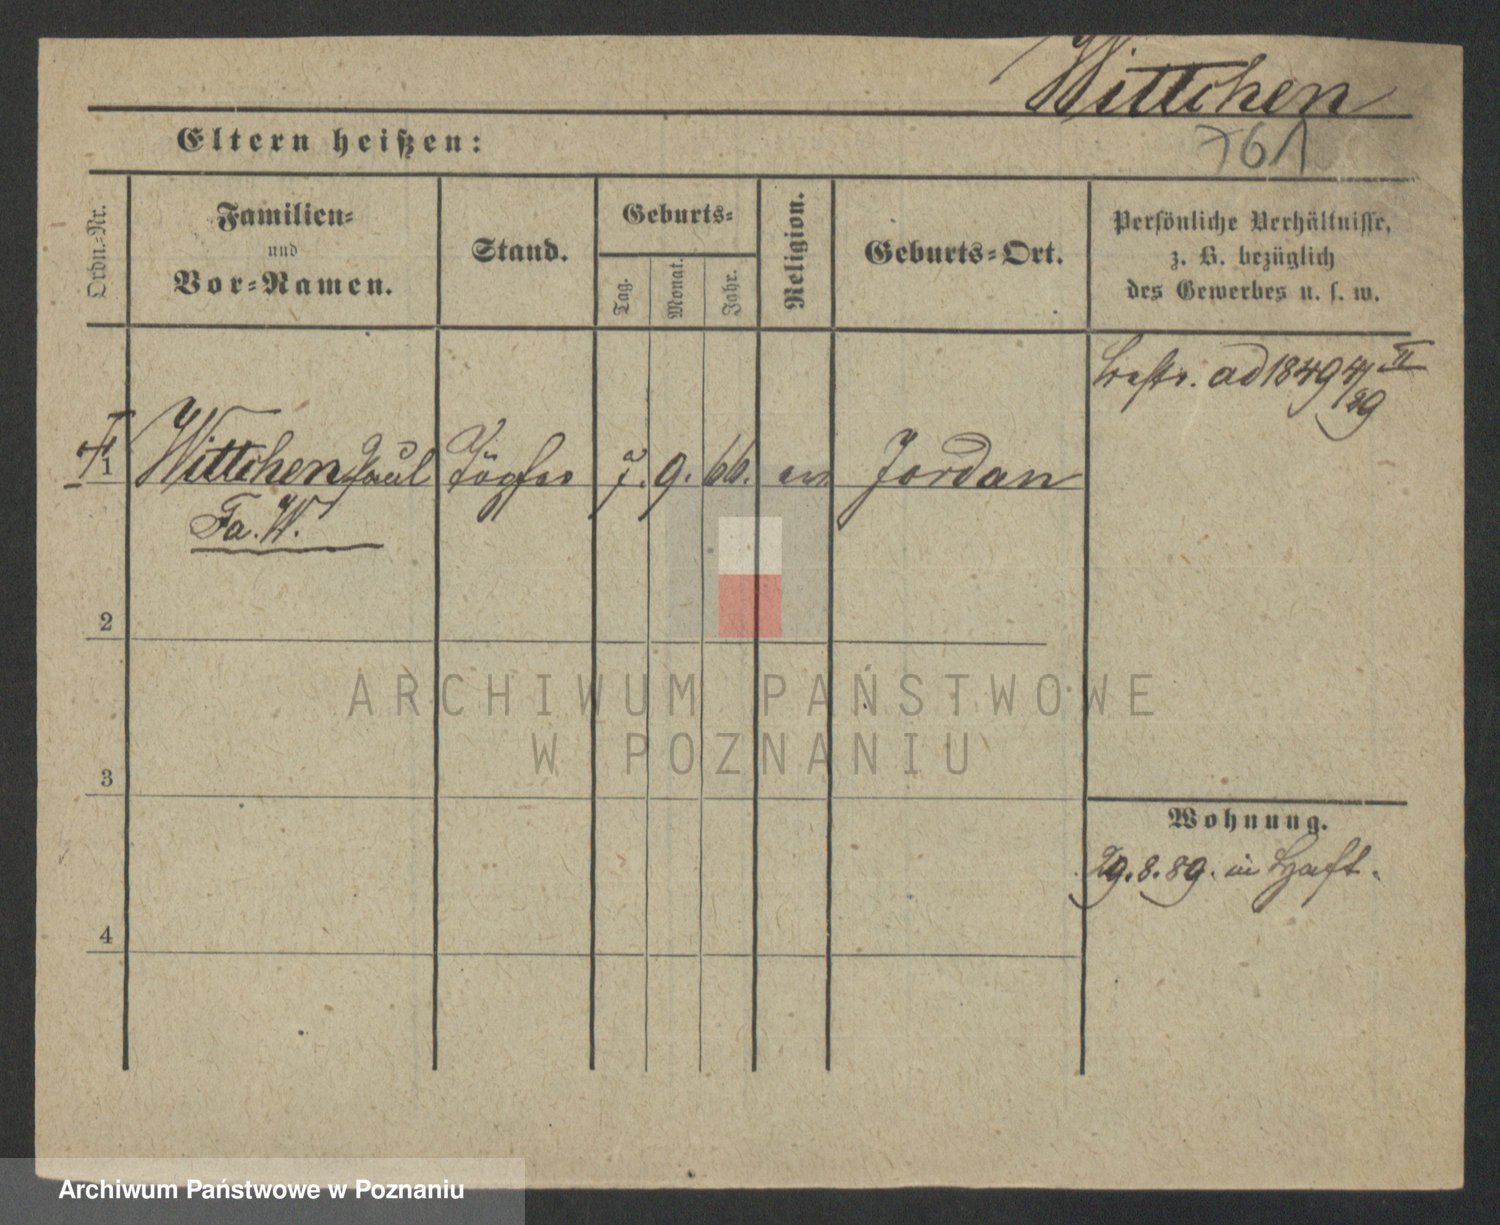 Wittchen
761
Eltern heißen:
Ordn.-Nr.
Familien-
und
Vor-Namen.
Stand.
Geburts-
Tag.
Monat.
Jahr.
Religion.
Geburts-Ort.
Persönliche Verhältnisse,
z. B. bezüglich
des Gewerbes u. s. w.
ad 1849 4/II 89
1 Wittchen Paul 7. 9. 66. ev Jordan
Fa. W.
2
3
4
Wohnung.
29.8.89. in Haft.
ARCHIWUM PAŃSTWOWE
W POZNANIU
Archiwum Państwowe w Poznaniu